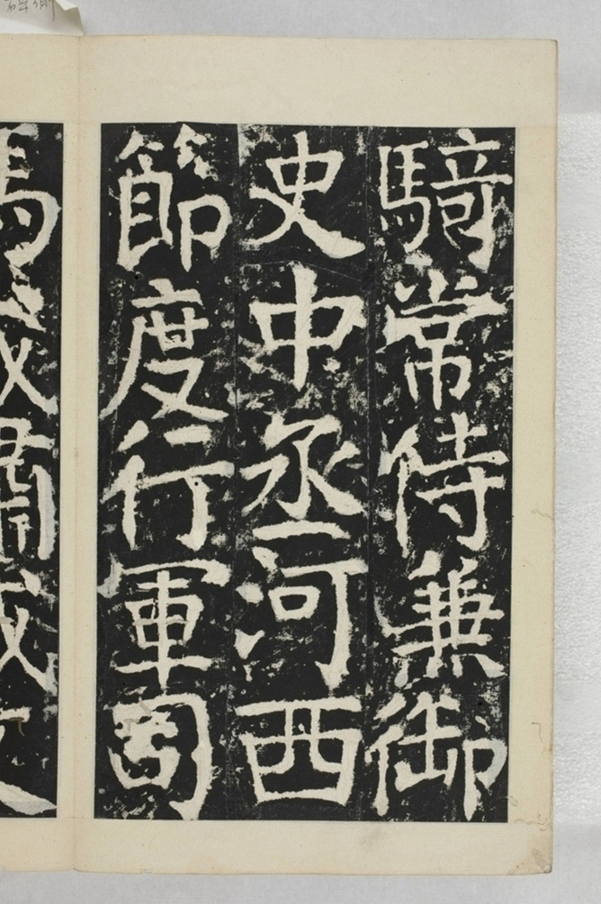 騎常侍兼御
史中丞河西
節度行軍司